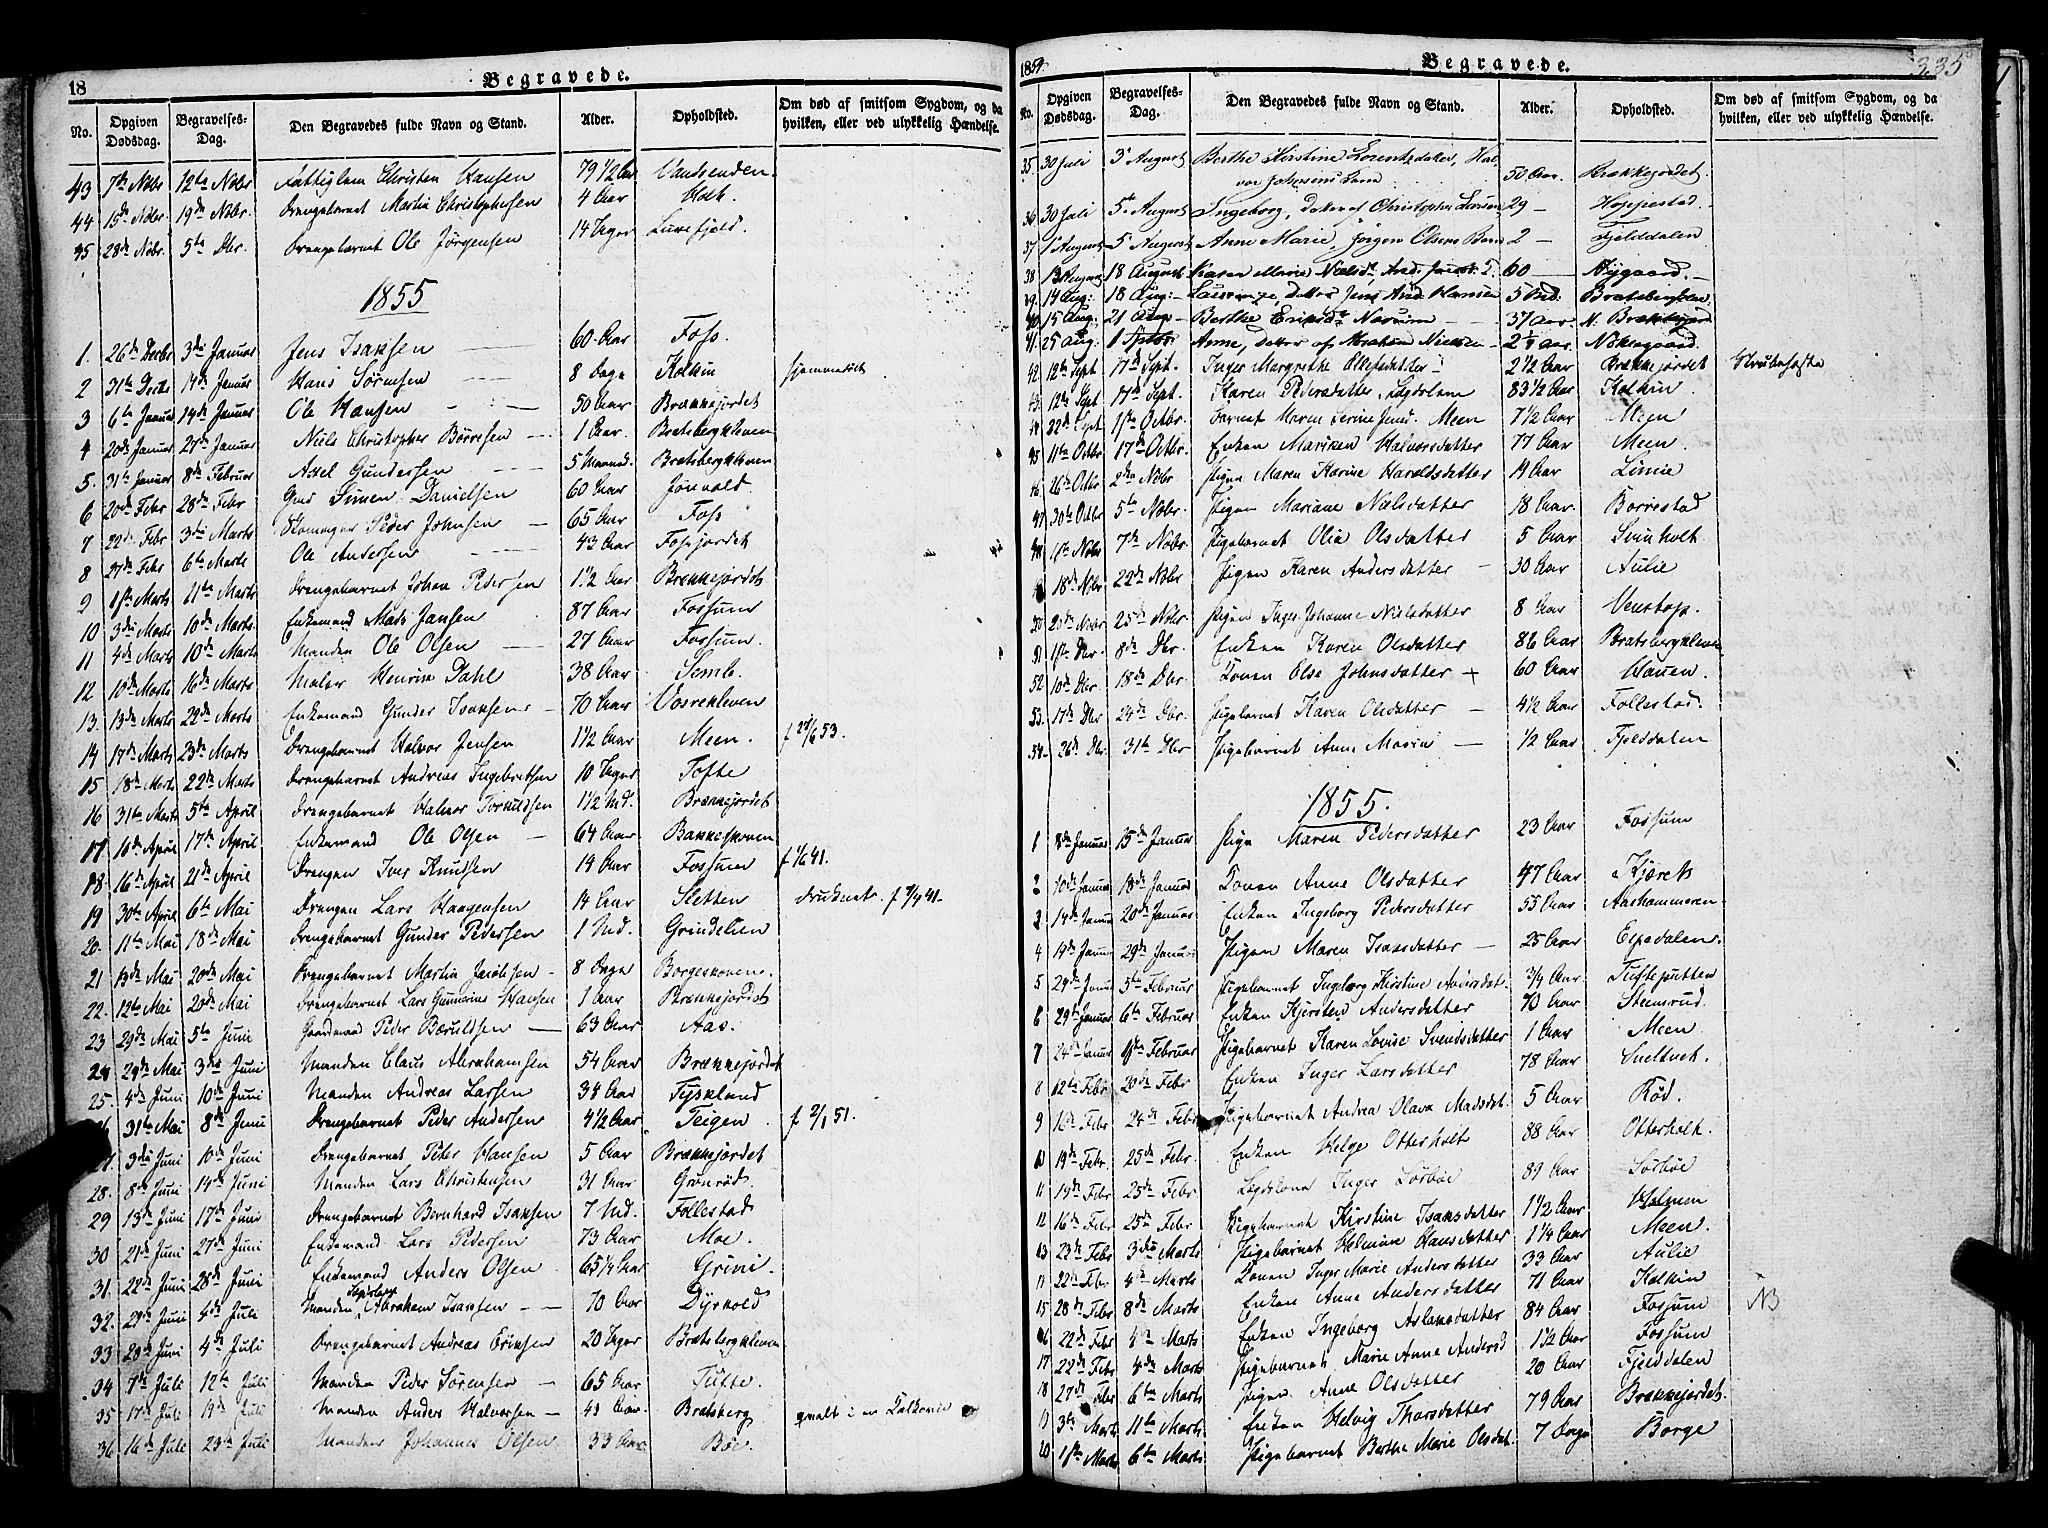 18
Begravede.
No. Opgiven Dødsdag. Begravelses-Dag. Den Begravedes fulde Navn og Stand. Alder. Opholdsted. Om død af smitsom Sygdom, og da hvilken, eller ved ulykkelig Hændelse.
43 7de Nobr 12te Nobr Fattiglem Christen Hansen 79 1/2 Aar Vandsenden.
44 15de Nobr. 19de Nobr. Drengebarnet Martin Christophersen 4 Aar Holt.
45 28de Nobr. 5te Dbr. Drengebarnet Ole Jørgensen 14 Uger Luxefjeld.
1855
1. 26de Decbr 3die Januar Jens Isaksen 60 Aar Foss
2 31te Decbr 14de Januar Hans Sørensen 8 Dage Kolkin hjemmedøbt
3 6te Januar 14de Januar Ole Hansen 50 Aar Brækkejordet
4 20de Januar 27de Januar Niels Christopher Børresen 1 Aar. Bratsbergkleven
5. 31te Januar 8de Februar Axel Gundersen 5 Maaned. Bratsbergkleven
6 20de Febr 28de Febr Simen Danielsen 60 Aar Jønvold.
7 22de Febr 3die Marts Skomager Peder Johnsen 65 Aar Foss
8 27de Febr 6te Marts Ole Andersen 43 Aar Fossjordet
9 1ste Marts 11te Marts Drengebarnet Johan Pedersen 1 1/2 Aar Brækkejordet
10 3die Marts 10de Marts Enkemand Mads Jansen 87 Aar Fossum
11 4de Marts 10de Marts Manden Ole Olsen 27 Aar Fossum.
12 10de Marts 16de Marts Maler Henrik Dahl 38 Aar Semb.
13. 13de Marts 22de Marts Enkemand Gunder Isaksen 70 Aar Vosrekleven
14 17de Marts 23de Marts Drengebarnet Halvor Jensen 1 1/2 Aar Meen. f 23/6 53.
15 18de Marts 22de Marts Drengebarnet Andreas Ingebretsen 10 Uger Tofte
16 31te Marts 5te April Drengebarnet Halvor Torkildsen 1 1/2 Md. Brækkejordet
17 10de April 17de April Enkemand Ole Olsen 64 Aar Bakkeskoven
18 16de April 21de April Drengen Iver Knudsen 14 Aar Fossum f 1/6 41.
19 30te April 6te Mai Drengen Lars Haagensen 14 Aar Sletten druknet. f 7/4 41.
20. 11te Mai 18de Mai Drengebarnet Gunder Pedersen 1 Md. Grindelien
21 13de Mai 20de Mai Drengebarnet Martin Jacobsen 8 Dage Borgeskoven.
22. 12te Mai 20de Mai Drengebarnet Lars Gunnarius Hansen 1 Aar Brækkejordet
23 29de Mai 5te Juni Gaardmand Peder Bærulfsen 63 Aar Aas.
24 29de Mai 3die Juni Manden Claus Abrahamsen 54 Aar Brækkejordet
25. 4de Juni 10de Juni Manden Andreas Larsen 34 Aar Tyskland
26 31te Mai 8de Juni Drengebarnet Peder Andersen 4 1/2 Aar Teigen f 2/1 51.
27. 3die Juni 10de Juni Drengebarnet Peter Hansen 5 Aar Brækkejordet
28. 8de Juni 14de Juni Manden Lars Christensen 31 Aar Grønrød.
29 13de Juni 17de Juni Drengebarnet Bernhard Isaksen 7 Md. Follestad
30 21de Juni 27de Juni Enkemand Lars Pedersen 73 Aar Moe.
31. 22de Juni 28de Juni Enkemand Anders Olsen 65 1/4 Aar Grini.
32. 29de Juni 4de Juli Manden Abraham Isaksen 70 Aar Dyrkold
33 28de Juni 4de Juli Drengebarnet Andreas Eriksen 20 Uger Bratsbergkleven
34 7de Juli 12te Juli Manden Peder Sørensen 65 Aar Tufte.
35 17de Juli 19de Juli Manden Anders Halvorsen 43 Aar. Bratsberg qvalt i en Kalkovn
36 16de Juli 23de Juli Manden Johannes Olsen 33 Aar Bøe.
1854.
Begravede.
335
No. Opgiven Dødsdag. Begravelses-Dag. Den Begravedes fulde Navn og Stand. Alder. Opholdsted. Om død af smitsom Sygdom, og da hvilken, eller ved ulykkelig Hændelse.
35 30 Juli 3 August Berthe Kirstine Lorentzdatter, Hal-
vor Johnsens 50 Aar. Brækkejordet.
36 30 Juli 5te August Ingeborg, datter af Christopher Larsen 29 Hoppestad.
37 1 August 5 August Anne Marie, Jørgen Olsens Barn 2 Fjelddalen
38 13 August 18 August Karen Marie Nielsd. 60 Nygaard.
39 14 Aug: 18 Aug: datter Jens And. Hansen 5 Md: Bratsberg
40 15 Aug. 21 Aug. Berthe Eriksdr 37 Aar.
41 25 Aug. 1 Sptbr. Anne, datter af Abraham Nielsen 2 1/4 Aar.
42 12te Sept 17de Sept. Inger Margrethe Ollesdatter 2 1/2 Aar Brækkejordet Strubehoste
43 12te Sept 17de Sept. Karen Pedersdatter, Lægdslem 83 1/2 Aar Kolkin
44 22de Sept 1ste Octbr. Barnet Maren Serine Jensd. Meen 7 1/2 Aar Meen
45 11te Octbr 17de Octbr. Enken Mariken Halvorsdatter 77 Aar Meen
46 26de Octbr 2den Nobr Pigen Maren Karine Haroldsdatter 19 Aar Limie
47 30te Octbr 5te Nobr. Pigen Mariane Nielsdatter 18 Aar. Borrestad
48 1ste Nobr 7de Nobr. Pigebarnet Olia Olsdatter 5 Aar Sniholt
18de Nobr 22de Nobr Pigen Karen Andersdatter 30 Aar Aulie
50 20de Nobr 25de Nobr Pigen Inger Johanne Nielsdatter 8 Aar Venstop.
51 1ste Dbr. 8de Dbr. Enken Karen Olsdatter 86 Aar Bratsbergkleven
52 10de Dbr 18de Dbr. Konen Else Johnsdatter + 60 Aar Hauen.
53. 17de Dbr 24de Dbr. Pigebarnet Karen Olsdatter 4 1/2 Aar Follestad.
54 26de Dbr. 31te Dbr Pigebarnet Anne Maria 1/2 Aar Fjelddalen
1855.
1 8de Januar 15de Januar Pige Maren Pedersdatter 23 Aar Fossum
2 10de Januar 18de Januar Konen Anne Olsdatter 47 Aar Kjærets
3 14de Januar 20de Januar Enken Ingeborg Pedersdatter 55 Aar Aashammeren
4 19de Januar 29de Januar Pigen Maren Isaksdatter 25 Aar Espedalen.
5 29de Januar 5te Februar Pigebarnet Ingeborg Kirstine Andersdat. 3/4 Aar Tufteputten
6 29de Januar 6te Februar Enken Kjersten Andersdatter 70 Aar Stensrud.
7 24de Januar Februar Pigebarnet Karen Lovise Svendsdatter 1 Aar Meen
8 12te Febr 20de Febr Enken Inger Larsdatter 78 Aar Sneltvet.
9 16de Febr 24de Febr Pigebarnet Andrea Olava Madsdat. 5 Aar Rød.
10 19de Febr. 25de Febr. Enken Helge Otterholt 88 Aar Otterholt.
11 19de Febr 25de Febr Lægdskone Inger Sørbøe 89 Aar Sørbøe
12 16de Febr 25de Febr Pigebarnet Kirstine Isaksdatter 1 1/2 Aar Holmen
13 23de Febr 3die Marts Pigebarnet Helmine Hansdatter 1 1/4 Aar Meen.
14 22de Febr 4de Marts Konen Inger Marie Andersdatter 33 Aar Aulie
15 28de Febr 8de Marts Enken Anne Andersdatter 71 Aar Kolkin
16 22de Febr 4de Marts Enken Ingeborg Aslaksdatter 84 Aar Fossum NB
17 22de Febr 4de Marts Pigebarnet Marie Anne Andersd 1 1/2 Aar Fossum
18 27de Febr 6te Marts Pigen Anne Olsdatter 20 Aar Fjelddalen
19 3die Marts 11te Marts Enken Helvig Thorsdatter 79 Aar Brækkejordet.
20 1ste Marts 6te Marts Pigebarnet Berthe Marie Olsdat. 7 Dage Borge